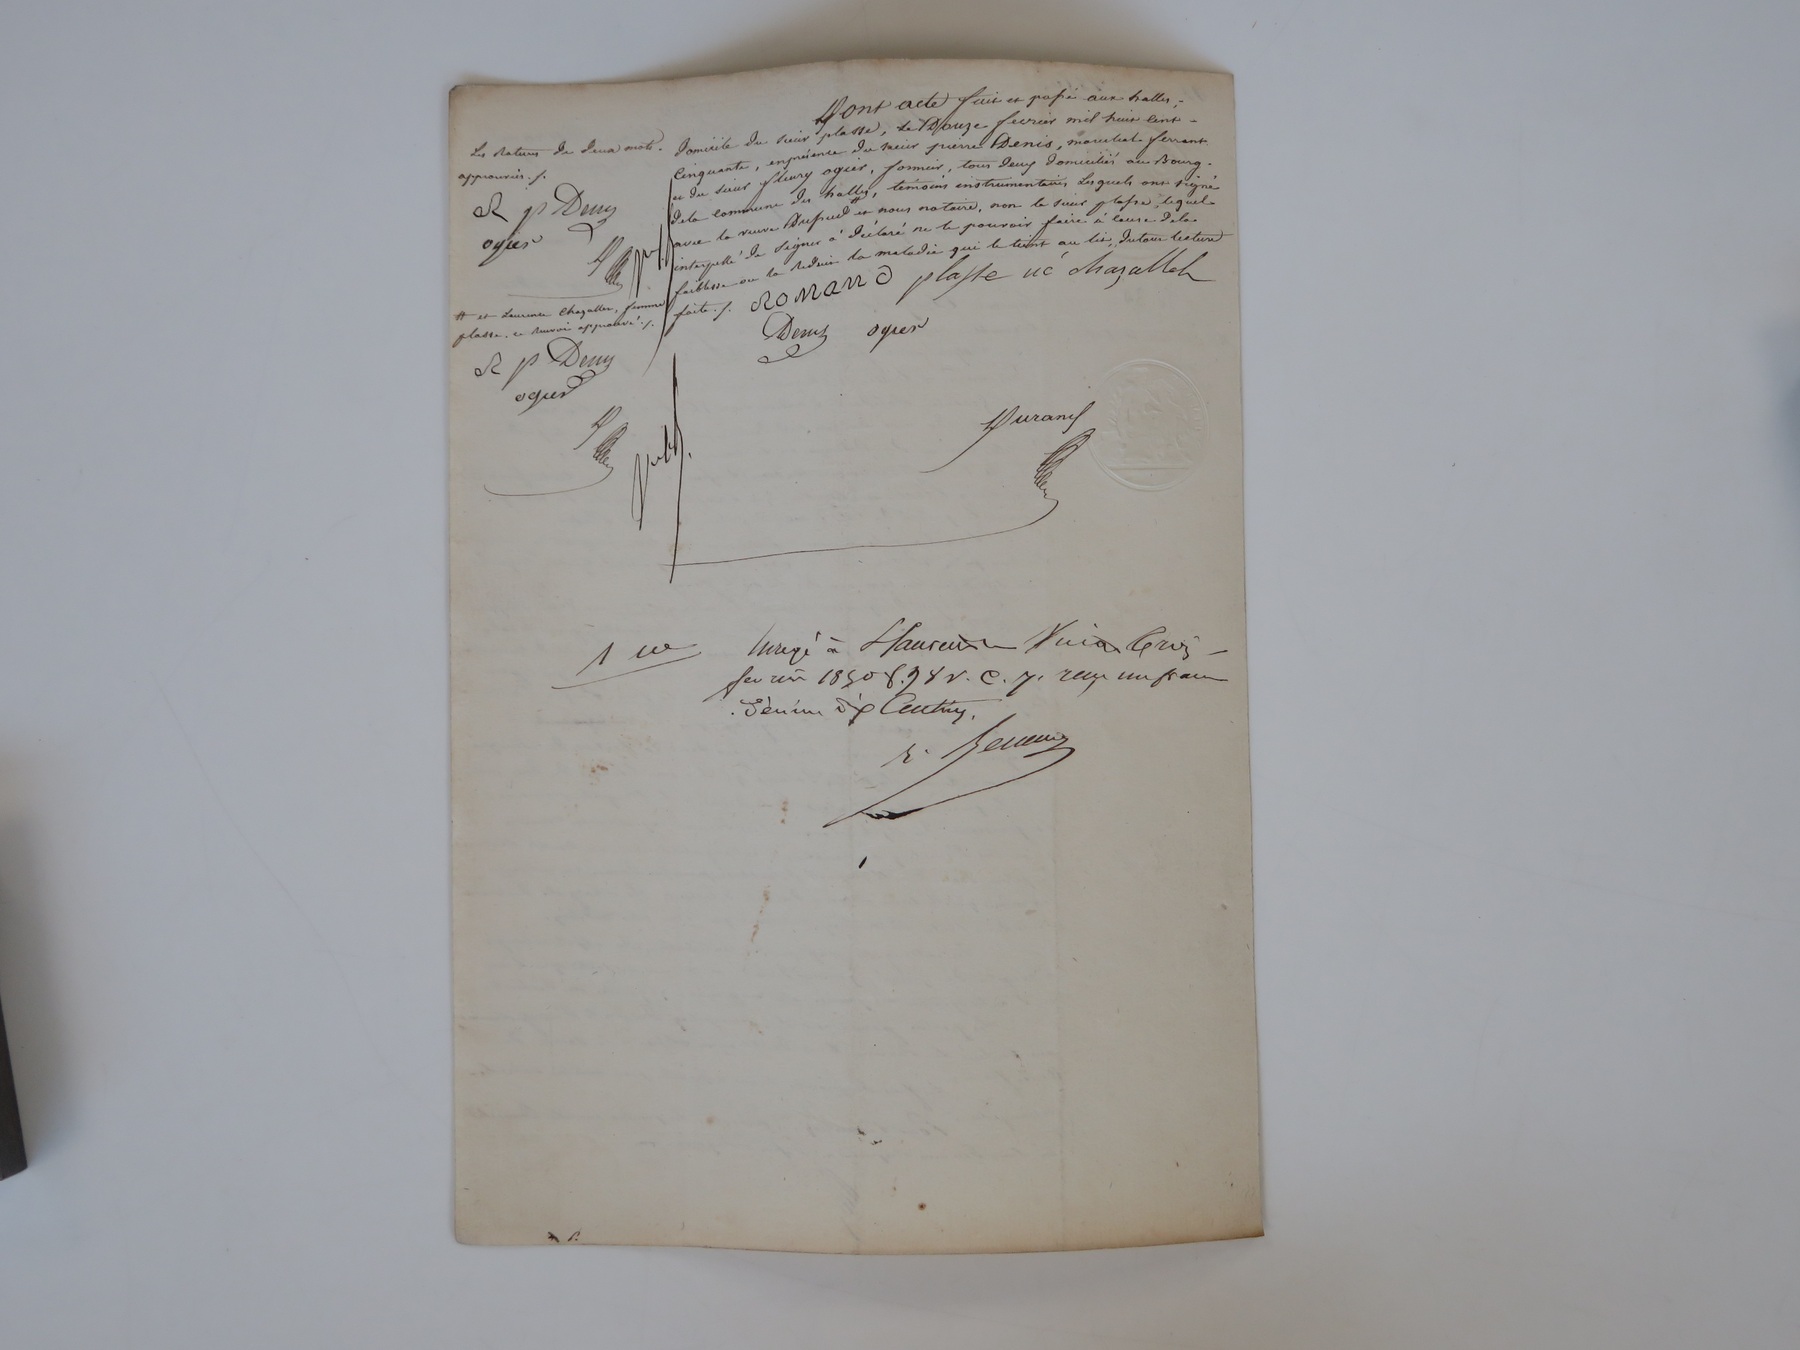 Dont acte fait et passé aux halles,
domicile du sieur plasse, le Douze fevrier mil huit cent
Cinquante, en présence du sieur pierre Denis, marechal ferrant
et du sieur fleury ogier, fermier, tous deux domiciliés au Bourg
de la commune des halles, témoins instrumentaires lesquels ont signé
avec la veuve # et nous notaire, non le sieur plasse, lequel
interpellé de signer a déclaré ne le pouvoir faire à cause de la
faiblesse ou la réduit la maladie qui le tient au lit, du tout lecture
faite ./.
ROMAND plasse né chazallet
Denis ogier
Durand
Les ratures de deux mots
approuvés ./.
R p Denis
ogier
# et Laurence Chazallet, femme
plasse, ce renvoi approuvé ./.
R p Denis
ogier
1 10
Enregé à St Laurent
fevrier 1850 f. 98 v. C. 7. reçu un franc
dixième dix Centimes.